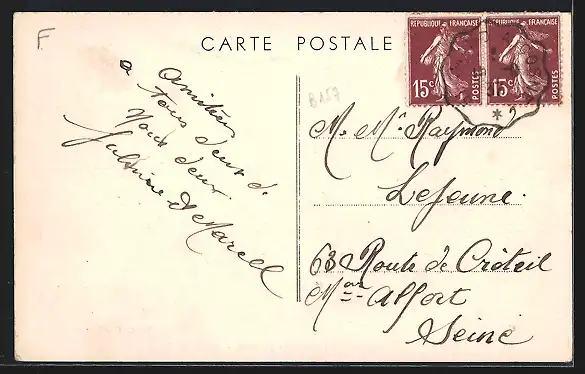 F
CARTE POSTALE
REPUBLIQUE FRANÇAISE
15c
POSTES
REPUBLIQUE FRANÇAISE
15c
POSTES
B157
Amitiés
a tous deux de
Nous deux.
et Marcel
M. Me Raymond
Lejeune.
63 Route de Créteil
Mon Alfort
Seine